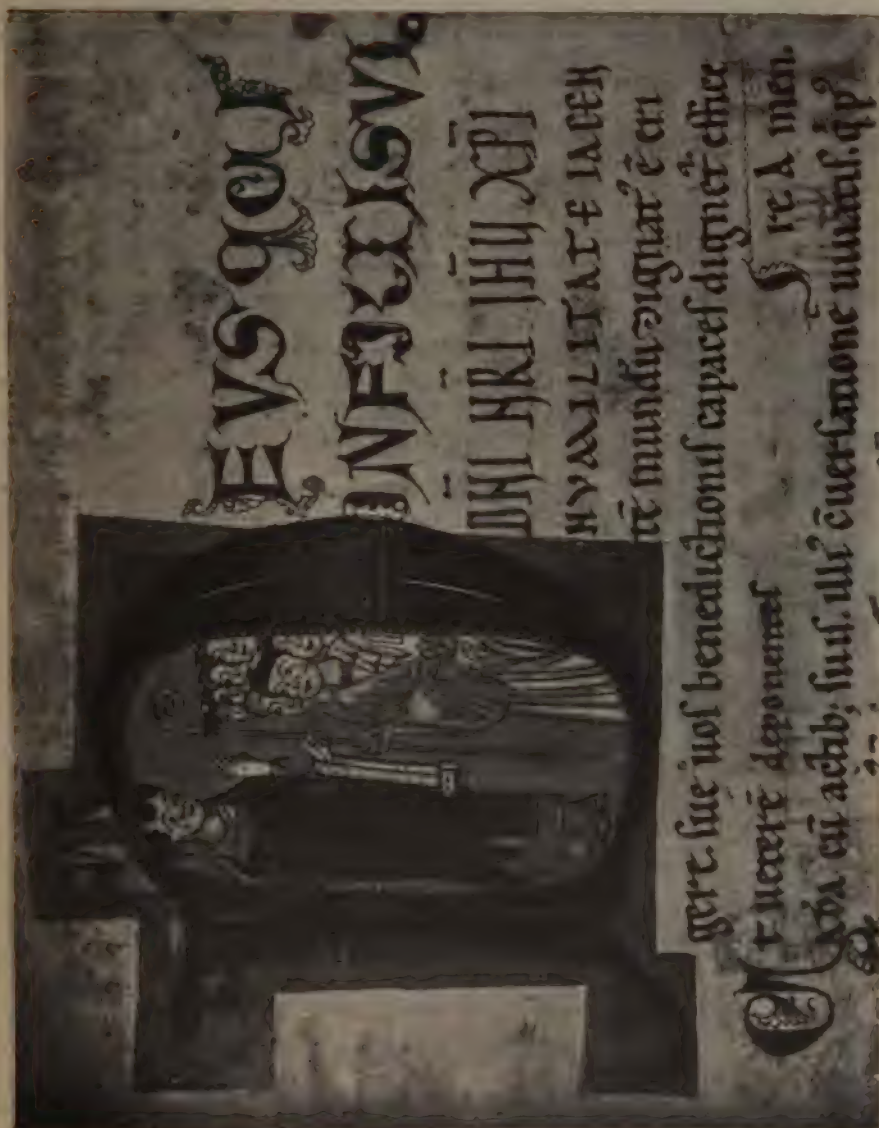 EVS QUI
INFILII SVI
DN̄I NR̄I IHŪ XP̄I
HVMILITATE IACEN
tē mundū dignat᾽ ē eri
gere. sue uos benedictionis capaces dignet᾽ effice
re Amen.
Ut ueterē deponentes
cū actib; suis. illi᾽ c̄uersatione uiuatis. q̇ p᾽